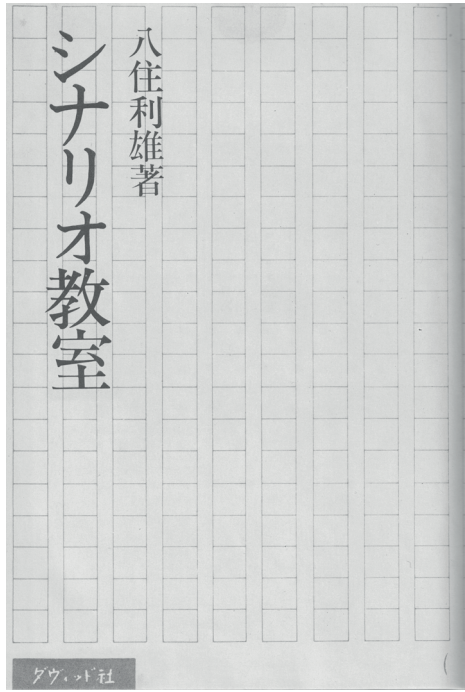 八住利雄著
シナリオ教室
ダヴィッド社